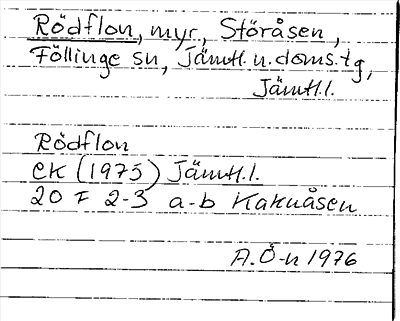 Rödflon, myr, Störåsen,
Föllinge sn, Jämtl. n. doms. tg,
Jämtl. l.
Rödflon
ek (1975) Jämtl. l.
20 F 2-3 a-b Kaknåsen
A.Ö-n 1976